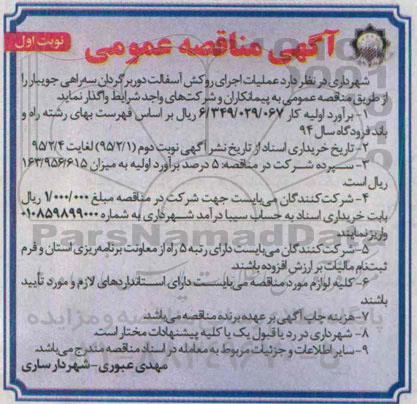 آگهی مناقصه عمومی
نوبت اول
شهرداری در نظر دارد عملیات اجرای روکش آسفالت دوربرگردان سه‌راهی جویبار را
از طریق مناقصه عمومی به پیمانکاران و شرکت‌های واجد شرایط واگذار نماید.
۱- برآورد اولیه کار ۶/۳۴۹/۰۲۹/۰۶۷ ریال بر اساس فهرست بهای رشته راه و
باند فرودگاه سال ۹۴
۲- تاریخ خریداری اسناد از تاریخ نشر آگهی نوبت دوم (۹۵/۲/۱) لغایت ۹۵/۲/۴
۳- سپرده شرکت در مناقصه: ۵ درصد برآورد اولیه به میزان ۱۶۳/۹۵۶/۶۱۵
ریال است.
۴- شرکت‌کنندگان می‌بایست جهت شرکت در مناقصه مبلغ ۱/۰۰۰/۰۰۰ ریال
بابت خریداری اسناد به حساب سیبا درآمد شهرداری به شماره ۰۱۰۸۵۹۸۹۹۰۰۰
واریز نمایند.
۵- شرکت‌کنندگان می‌بایست دارای رتبه ۵ راه از معاونت برنامه‌ریزی استان و فرم
ثبت‌نام مالیات بر ارزش افزوده باشند.
۶- کلیه لوازم مورد مناقصه می‌بایست دارای استانداردهای لازم و مورد تأیید
باشند.
۷- هزینه چاپ آگهی بر عهده برنده مناقصه می‌باشد.
۸- شهرداری در رد یا قبول یک یا کلیه پیشنهادات مختار است.
۹- سایر اطلاعات و جزئیات مربوط به معامله در اسناد مناقصه مندرج می‌باشد.
مهدی عبوری - شهردار ساری
ParsNamadData